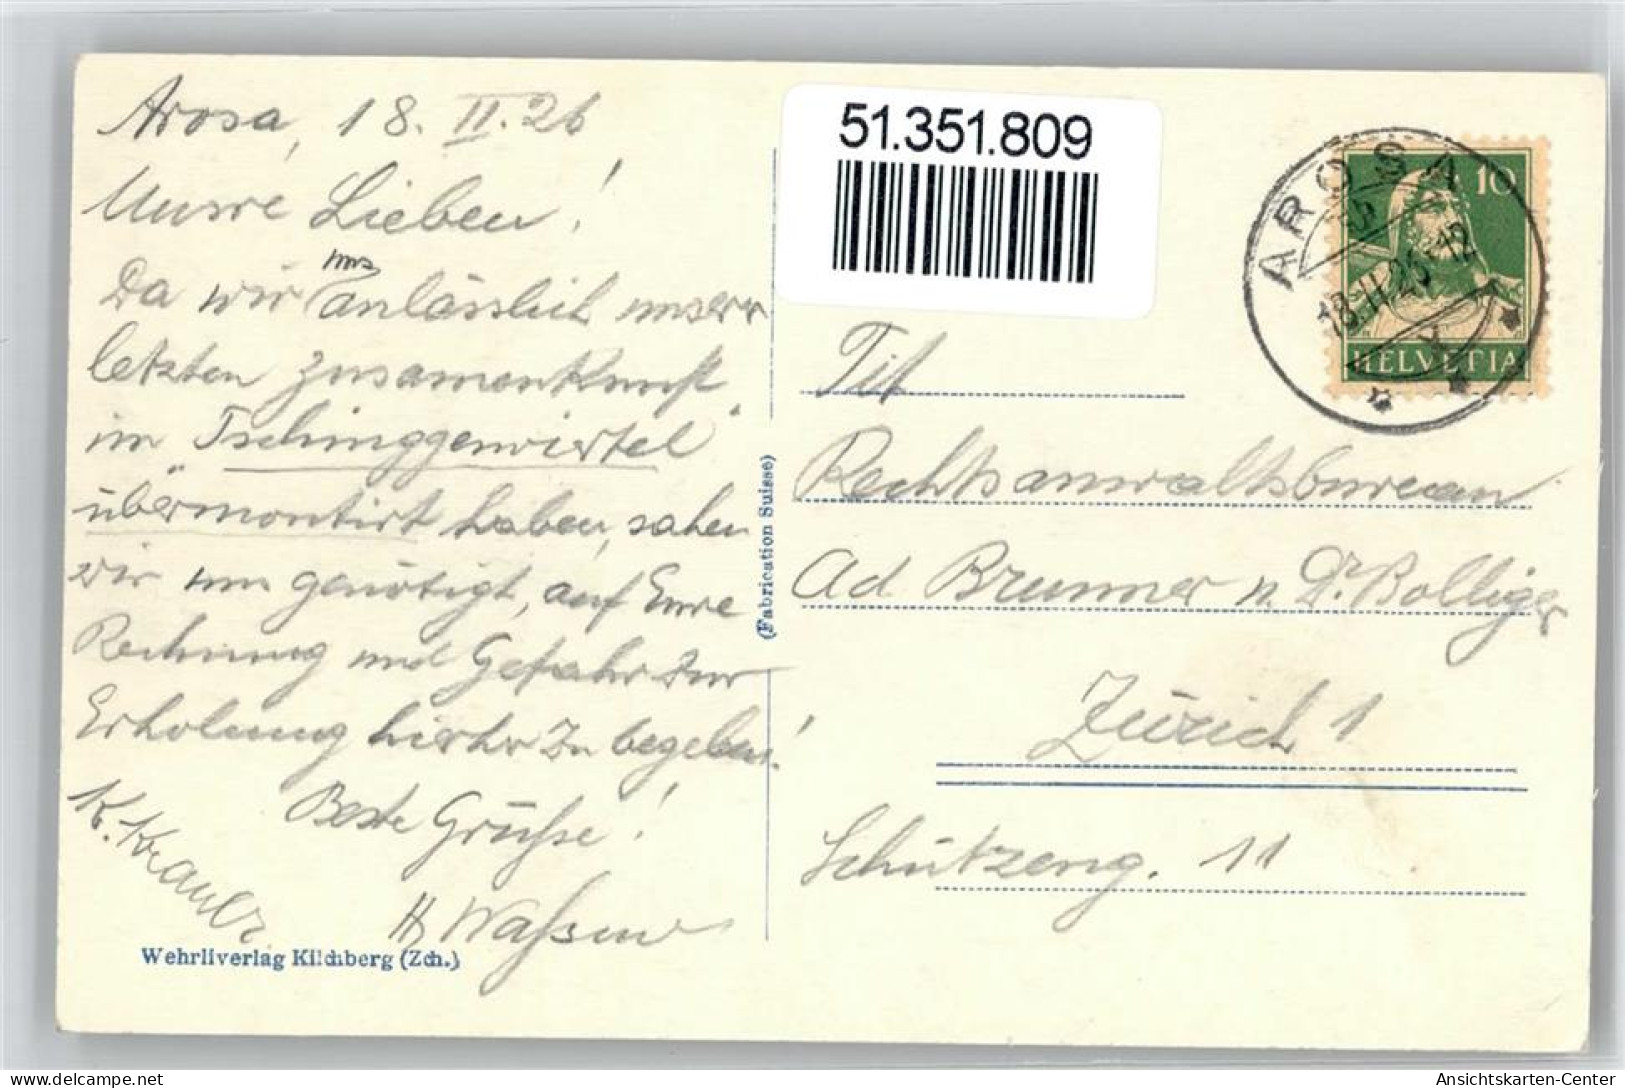 Arosa, 18. II. 26
Unsre Lieben!
uns
Da wir anlässlich unsrer
letzten Zusammenkunft
im "Tschinggenviertel"
übermontirt haben, sahen
wir uns genötigt, auf Eure
Rechnung und Gefahr zur
Erholung hierher zu begeben!
Beste Grüsse!
K.
H.
Wehrliverlag Kilchberg (Zch.)
(Fabrication Suisse)
51.351.809
AROSA
18.II.26-12
10
HELVETIA
Tit
Rechtsanwaltsbureau
Ad Brunner u. Dr Bolliger
Zürich 1
Schützeng. 11
Ansichtskarten-Center
delcampe.net